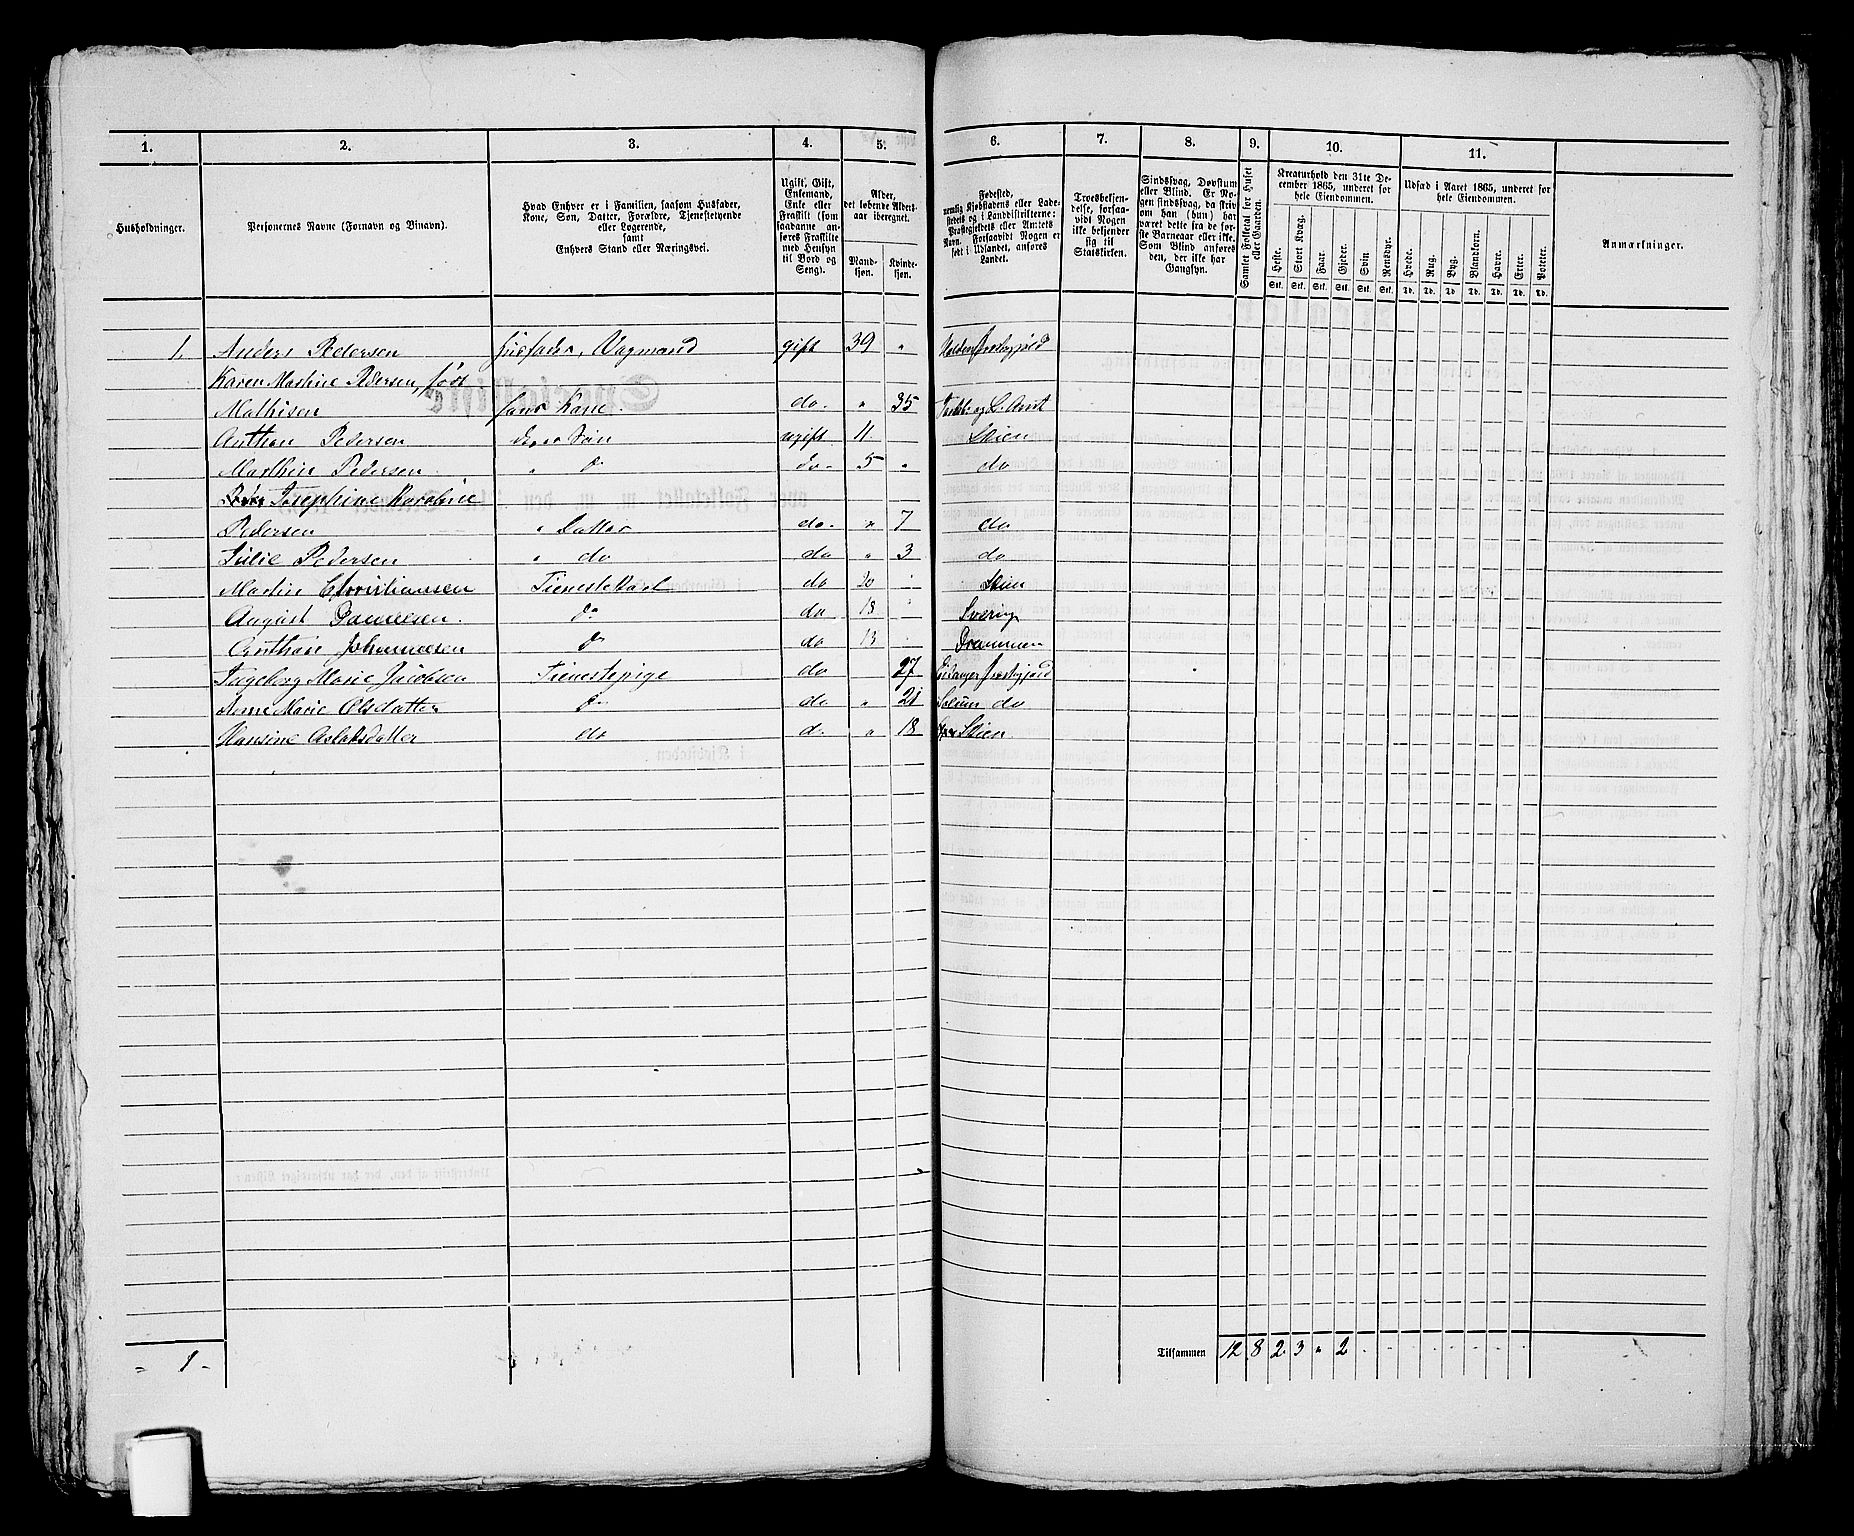 1. 2. 3. 4. 5. 6. 7. 8. 9. 10. 11.
Husholdninger.
Personernes Navne (Fornavn og Binavn).
Hvad Enhver er i Familien, saasom Husfader,
Kone, Søn, Datter, Forældre, Tjenestetyende
eller Logerende,
samt
Enhvers Stand eller Næringsvei.
Ugift, Gift,
Enkemand,
Enke eller
Fraskilt (som
saadanne an-
føres Fraskilte
med Hensyn
til Bord og
Seng).
Alder,
det løbende Alders-
aar iberegnet.
Mand-
kjøn.
Kvinde-
kjøn.
Fødested,
nemlig Kjøbstadens eller Lade-
stedets og i Landdistrikterne:
Præstegjeldets eller Amtets
Navn. Forsaavidt Nogen er
født i Udlandet, anføres
Landet.
Troesbekjen-
delse, forsaa-
vidt Nogen
ikke bekjender
sig til
Statskirken.
Sindssvag, Døvstum
eller Blind. Er No-
gen sindssvag, da skriv
om han (hun) har
været dette fra de før-
ste Barneaar eller ikke.
Som Blind anføres
den, der ikke har
Gangsyn.
Samlet Folketal for Huset
eller Gaarden.
Kreaturhold den 31te De-
cember 1865, underet for
hele Eiendommen.
Heste. Stort Kvæg. Faar. Gjeder. Svin Rensdyr.
Stk. Stk. Stk. Stk. Stk. Stk.
Udsæd i Aaret 1865, underet for
hele Eiendommen.
Hvede. Rug. Byg. Blandkorn. Havre. Erter. Poteter.
Td. Td. Td. Td. Td. Td. Td.
Anmærkninger.
1. Anders Pedersen Husfader, Vogmand gift 39 " Holden Præstegjeld
Karen Martine Pedersen, født
Mathisen hans Kone. do. " 35
Anthon Pedersen Søn ugift 11. Skien
Marthin Pedersen " do do. 5 " do
Josephine Karoline
Pedersen " Datter do. " 7 do
Julie Pedersen " do do " 3 do
Martin Christiansen Tienestekarl do 20 Skien
August Danielsen. do do 18 Sverig
Anthon Johannesen do do 13 Drammen
Ingeborg Marie Jacobsen Tienestepige do 27 Eidanger Præstegjeld
Anne Marie Olsdatter do do " 21 Solum do
Hansine Aslaksdatter do d. " 18 Skien.
- 1 -
Tilsammen 12 8 2 3 " 2